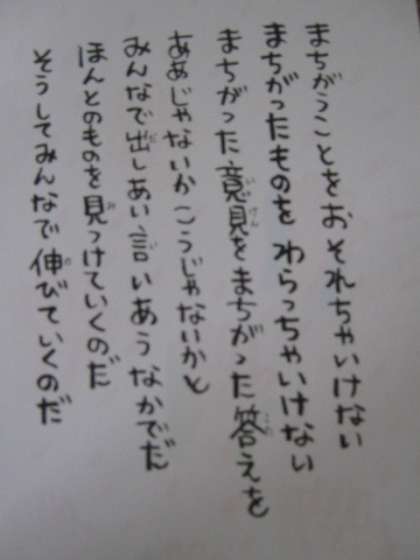 まちがうことをおそれちゃいけない
まちがったものをわらっちゃいけない
まちがった意見をまちがった答えを
ああじゃないかこうじゃないかと
みんなで出しあい言いあうなかでだ
ほんとのものを見つけていくのだ
そうしてみんなで伸びていくのだ